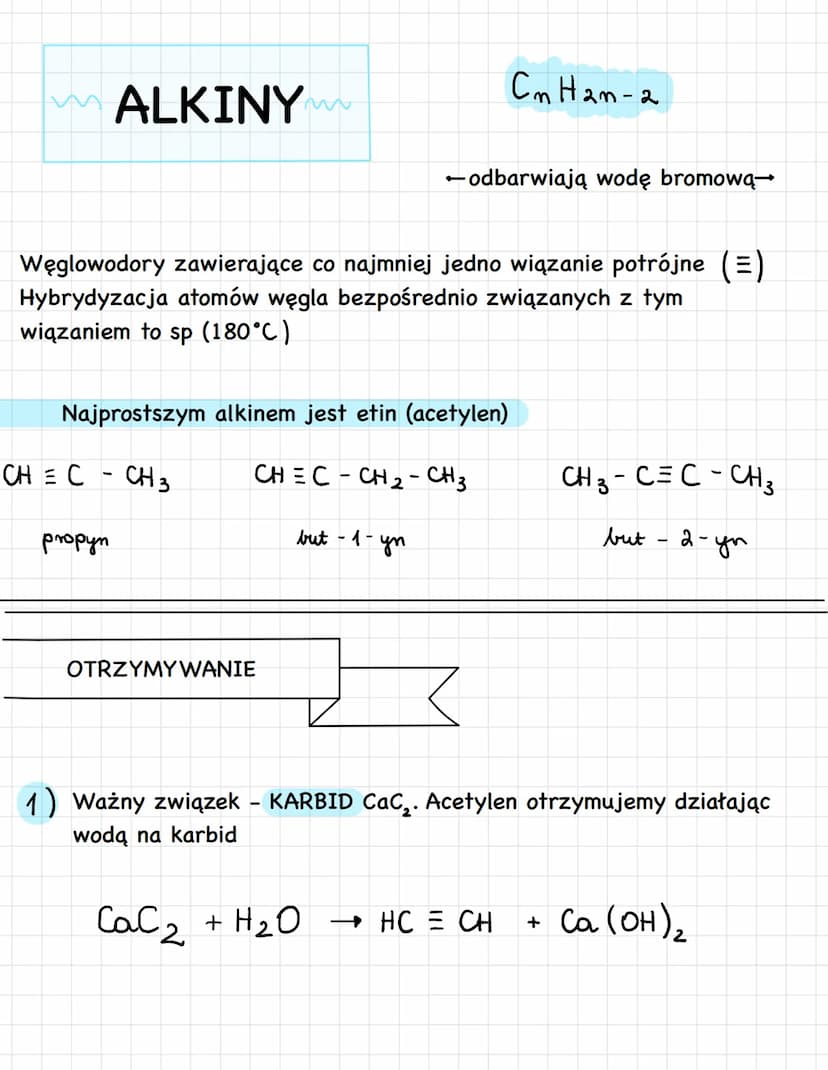 ALKINY
CnH2n-2
←odbarwiają wodę bromową→
Węglowodory zawierające co najmniej jedno wiązanie potrójne (≡)
Hybrydyzacja atomów węgla bezpośrednio związanych z tym
wiązaniem to sp (180°C)
Najprostszym alkinem jest etin (acetylen)
CH ≡ C - CH3
CH ≡ C - CH2 - CH3
CH3 - C ≡ C - CH3
propyn
but - 1 - yn
but - 2 - yn
OTRZYMYWANIE
1) Ważny związek - KARBID CaC2. Acetylen otrzymujemy działając
wodą na karbid
CaC2 + H2O → HC ≡ CH + Ca(OH)2